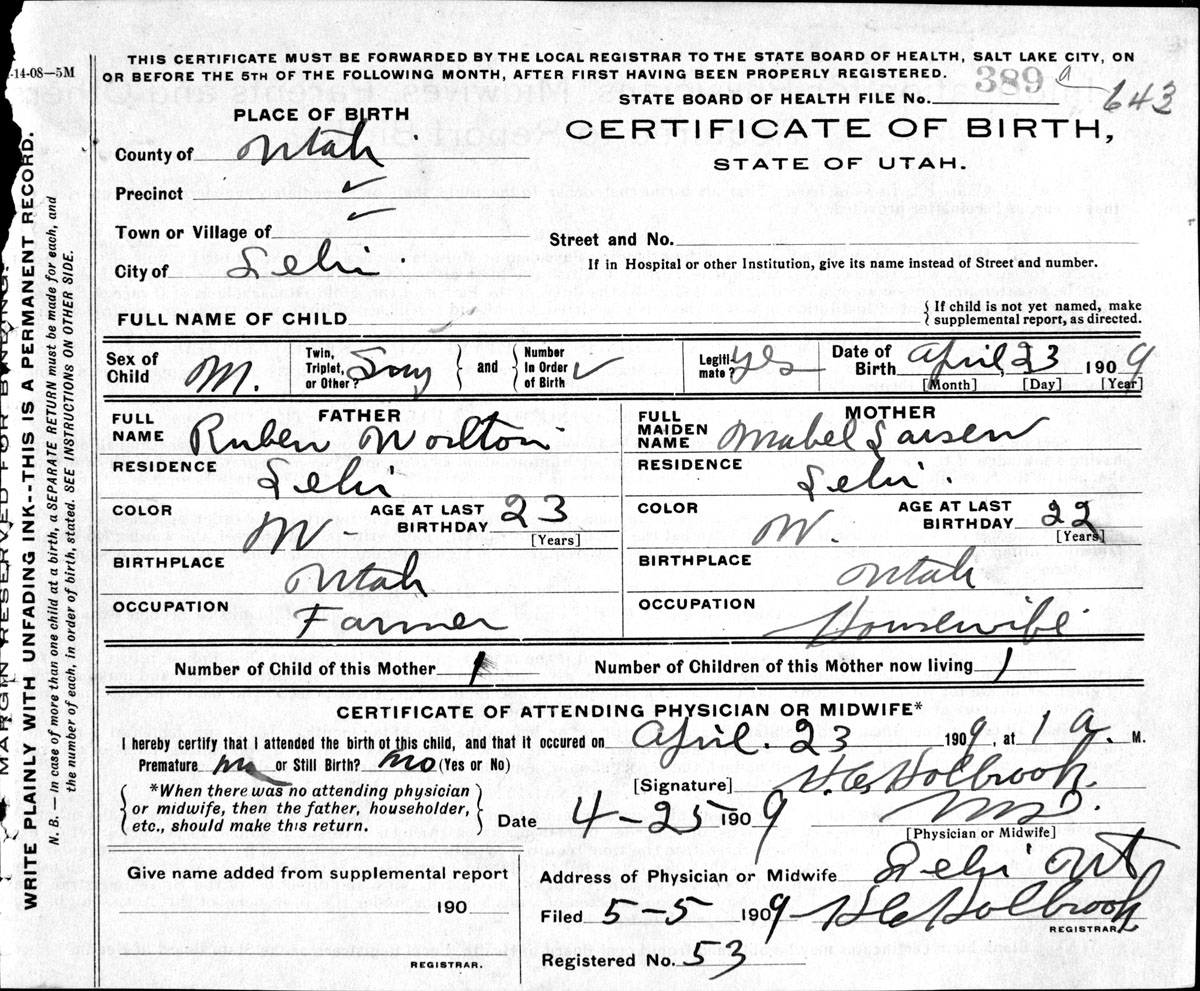 THIS CERTIFICATE MUST BE FORWARDED BY THE LOCAL REGISTRAR TO THE STATE BOARD OF HEALTH, SALT LAKE CITY, ON
-14-08—5M OR BEFORE THE 5TH OF THE FOLLOWING MONTH, AFTER FIRST HAVING BEEN PROPERLY REGISTERED.
STATE BOARD OF HEALTH FILE No. 389 a 643
PLACE OF BIRTH
CERTIFICATE OF BIRTH,
STATE OF UTAH.
County of Utah
Precinct ✓
Town or Village of ✓
Street and No.
City of Lehi.
If in Hospital or other Institution, give its name instead of Street and number.
FULL NAME OF CHILD
{ If child is not yet named, make
supplemental report, as directed.
Sex of Child M. Twin, Triplet, or Other? } and { Number In Order of Birth ✓ Legiti- mate? yes Date of Birth April, 23 1909
[Month] [Day] [Year]
FATHER
FULL NAME Ruben Worlton
MOTHER
FULL MAIDEN NAME Mabel Larsen
RESIDENCE Lehi
RESIDENCE Lehi.
COLOR W AGE AT LAST BIRTHDAY 23 [Years]
COLOR W. AGE AT LAST BIRTHDAY 22 [Years]
BIRTHPLACE Utah
BIRTHPLACE Utah
OCCUPATION Farmer
OCCUPATION Housewife
Number of Child of this Mother 1 Number of Children of this Mother now living 1
CERTIFICATE OF ATTENDING PHYSICIAN OR MIDWIFE*
I hereby certify that I attended the birth of this child, and that it occured on April. 23 1909, at 1 a. M.
Premature no or Still Birth? no (Yes or No)
[Signature] Holbrook
M.D.
[Physician or Midwife]
{ *When there was no attending physician
or midwife, then the father, householder,
etc., should make this return. }
Date 4-25 1909
Give name added from supplemental report
190
REGISTRAR.
Address of Physician or Midwife Lehi Ut
Filed 5-5 1909 Holbrook
REGISTRAR
Registered No. 53
MARGIN RESERVED FOR BINDING.
WRITE PLAINLY WITH UNFADING INK--THIS IS A PERMANENT RECORD.
N. B. — In case of more than one child at a birth, a SEPARATE RETURN must be made for each, and
the number of each, in order of birth, stated. SEE INSTRUCTIONS ON OTHER SIDE.